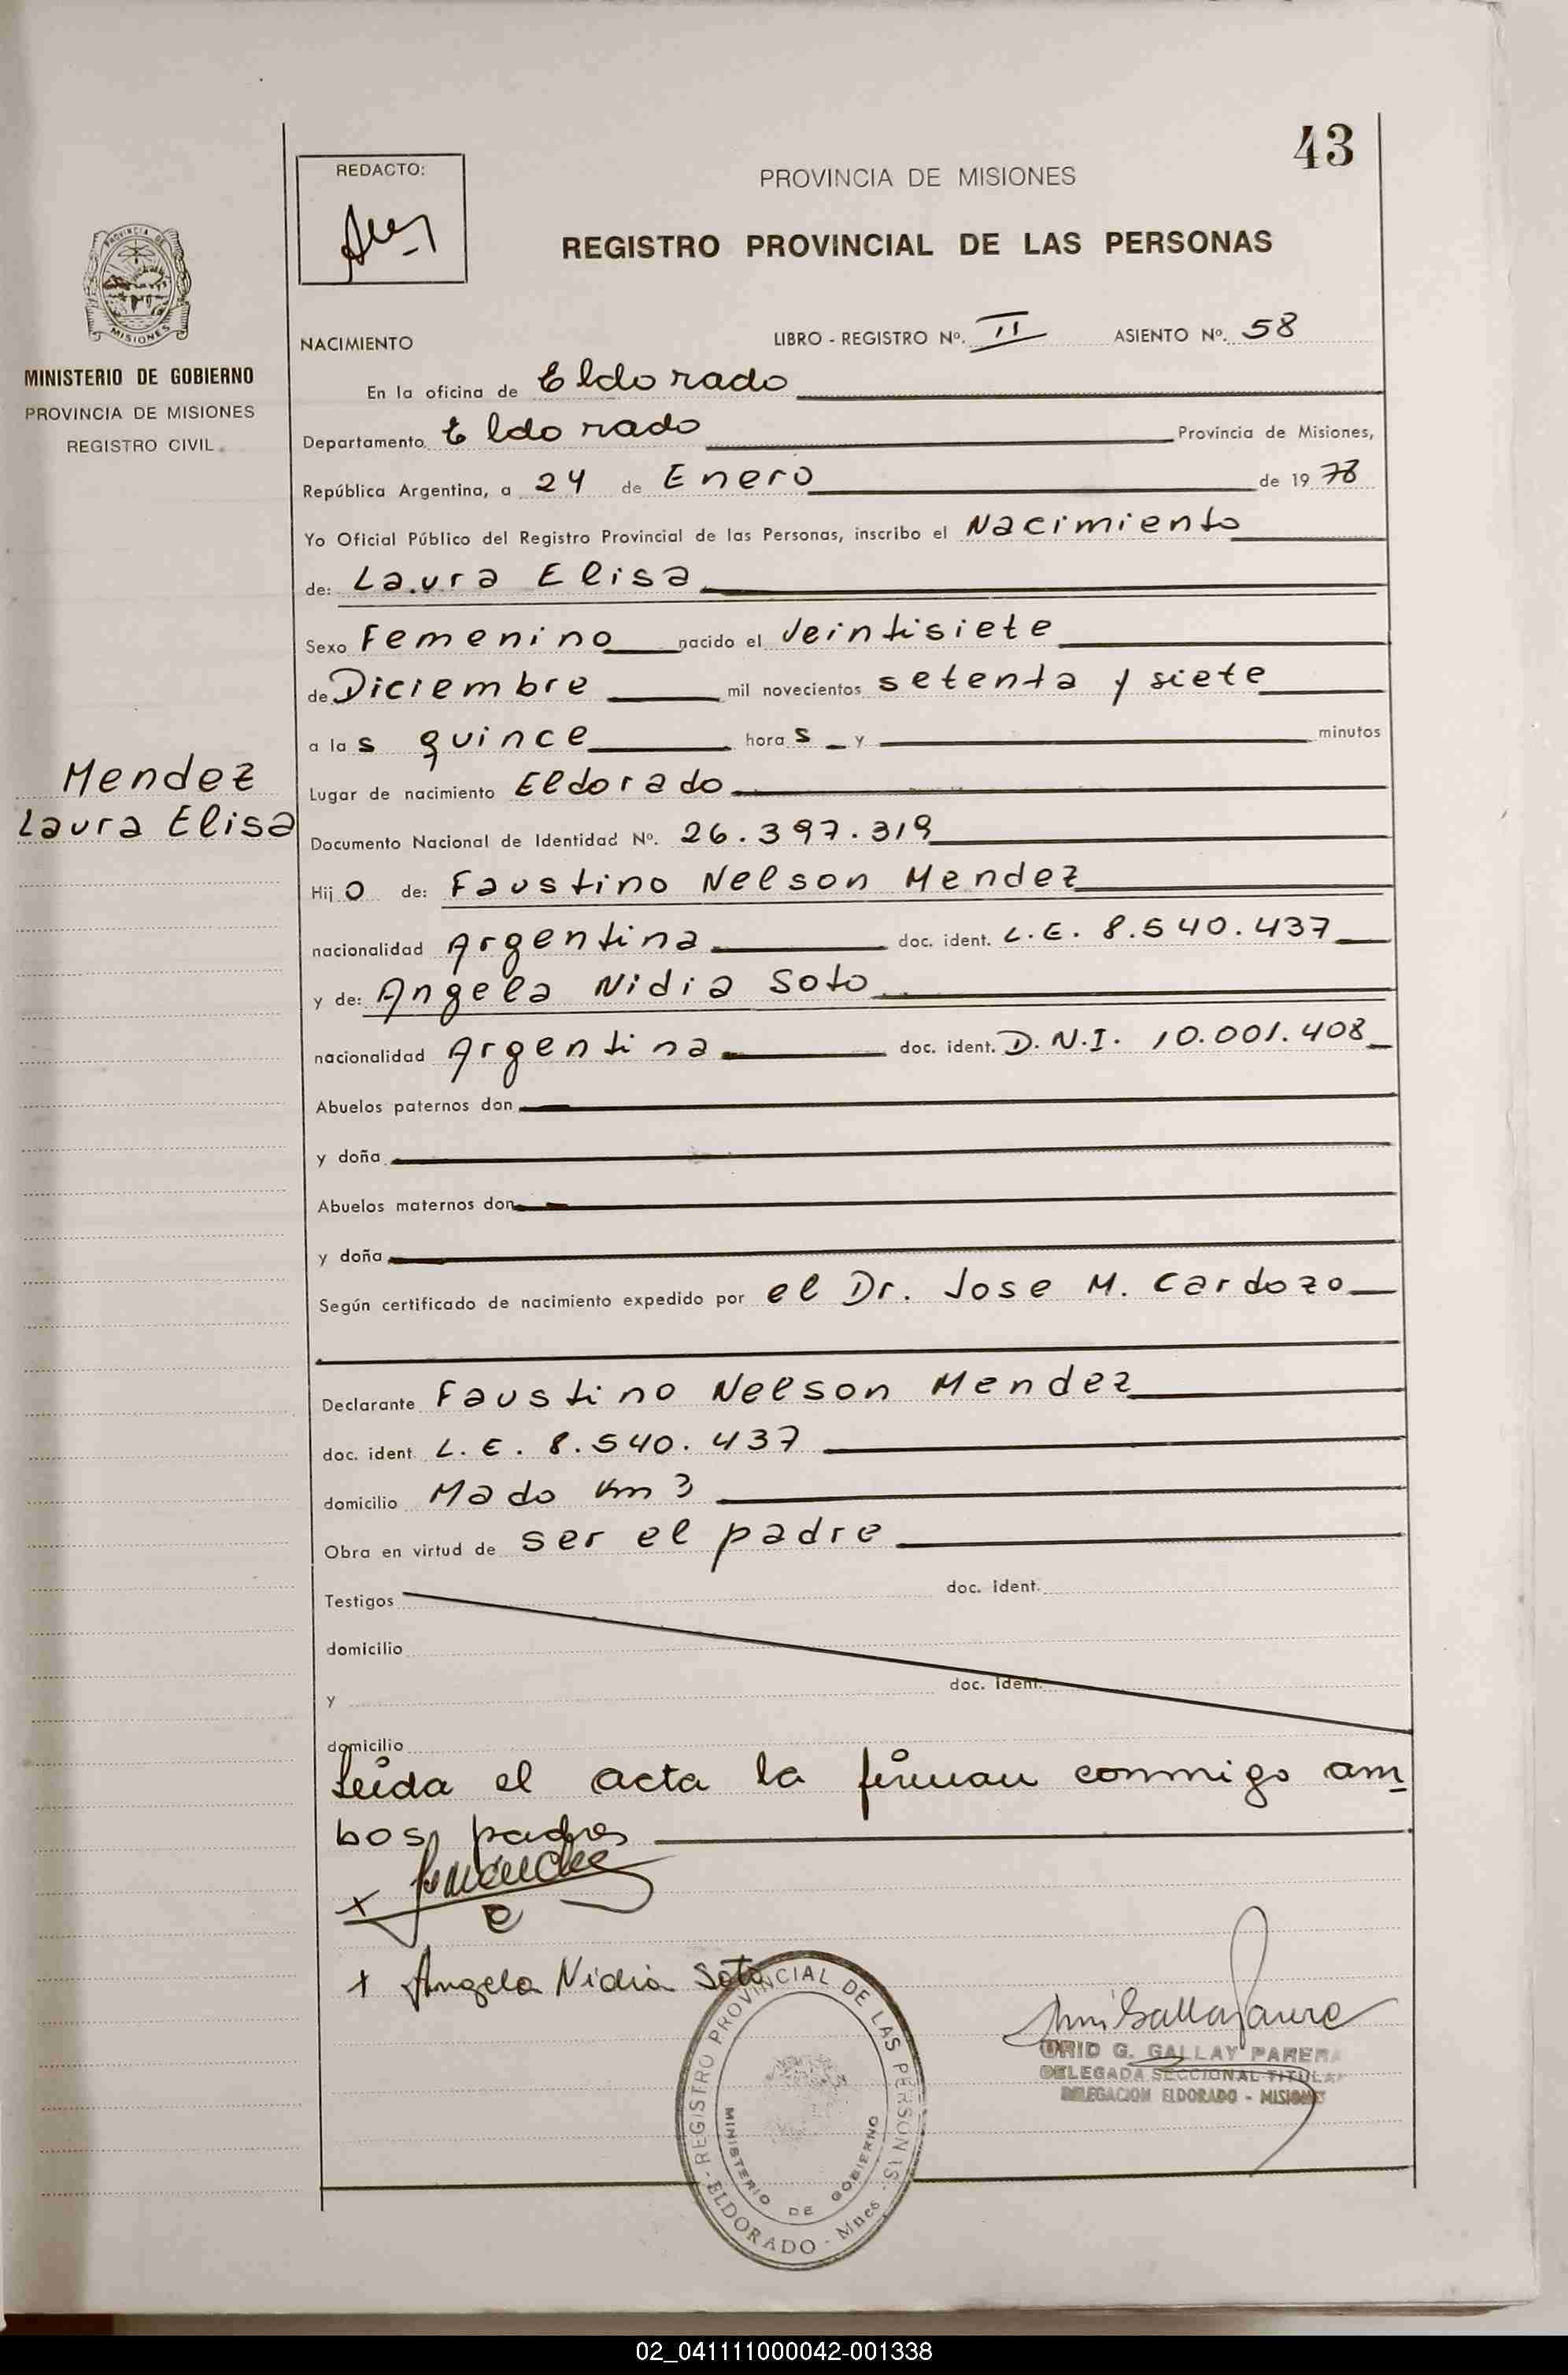 43
REDACTO:
PROVINCIA DE MISIONES
REGISTRO PROVINCIAL DE LAS PERSONAS
PROVINCIA DE
MISIONES
MINISTERIO DE GOBIERNO
PROVINCIA DE MISIONES
REGISTRO CIVIL
NACIMIENTO LIBRO - REGISTRO Nº. II ASIENTO Nº. 58
En la oficina de Eldorado
Departamento Eldorado Provincia de Misiones,
República Argentina, a 24 de Enero de 1978
Yo Oficial Público del Registro Provincial de las Personas, inscribo el Nacimiento
de: Laura Elisa
Sexo Femenino nacido el veintisiete
de Diciembre mil novecientos setenta y siete
a las quince horas y minutos
Mendez
Laura Elisa
Lugar de nacimiento Eldorado
Documento Nacional de Identidad Nº. 26.397.319
Hijo de: Faustino Nelson Mendez
nacionalidad Argentina doc. ident. L.E. 8.540.437
y de: Angela Nidia Soto
nacionalidad Argentina doc. ident. D.N.I. 10.001.408
Abuelos paternos don
y doña
Abuelos maternos don
y doña
Según certificado de nacimiento expedido por el Dr. Jose M. Cardozo
Declarante Faustino Nelson Mendez
doc. ident. L.E. 8.540.437
domicilio Mado Km 3
Obra en virtud de ser el padre
Testigos doc. ident.
domicilio
y doc. ident.
domicilio
Leida el acta la firman conmigo am
bos padres
+ Angela Nidia Soto
REGISTRO PROVINCIAL DE LAS PERSONAS
MINISTERIO DE GOBIERNO
ELDORADO - Mnes
G. GALLAY PARERA
DELEGADA SECCIONAL TITULAR
DELEGACION ELDORADO - MISIONES
02_041111000042-001338